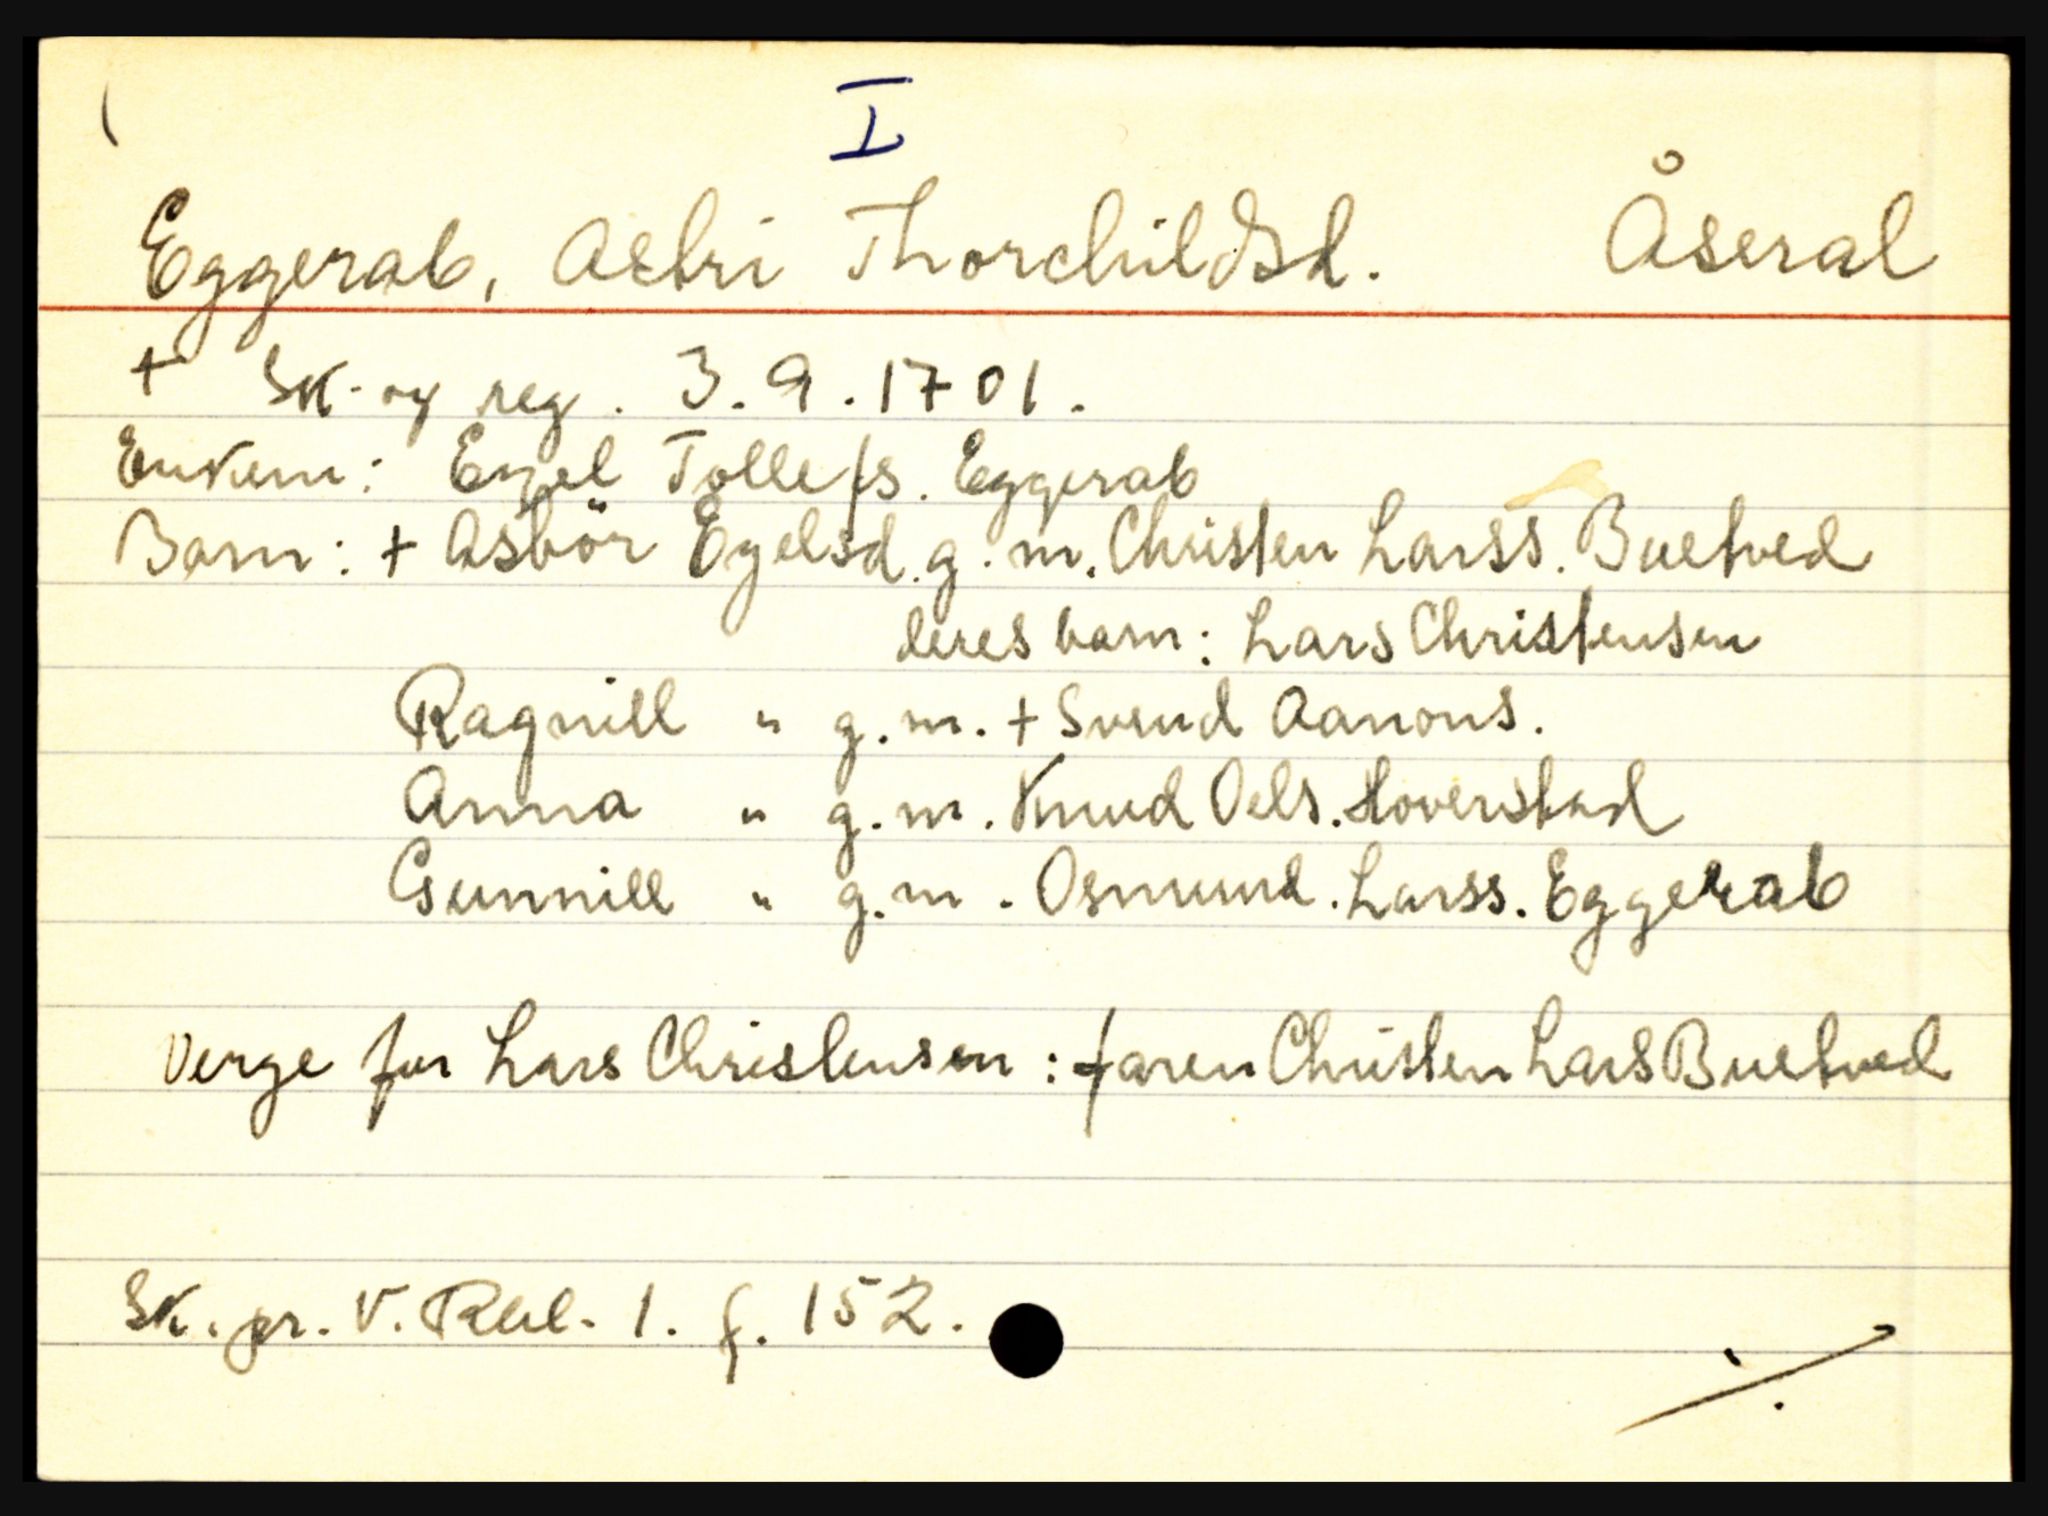 I
Eggerab, Aebri Thorchildsd. Åseral
+ Sk. og reg. 3.9.1701.
Enkem: Egel Tollefs. Eggerab
Barn: + Asbör Egelsd. g.m. Christen Larss. Buetved
deres barn: Lars Christensen
Ragnill " g.m. + Svend Aanons.
Anna " g.m. Knud Oels. Hoverstad
Gunnill " g.m. Osmund. Larss. Eggerab
Verge for Lars Christensen: faren Christen Lars Buetved
Sk. pr. V. Rbl. 1. f. 152.
./.